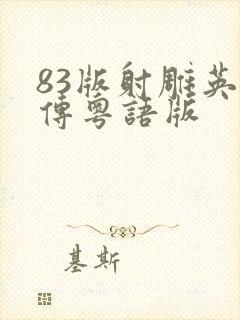 83版射雕英
傳粵語版
基斯